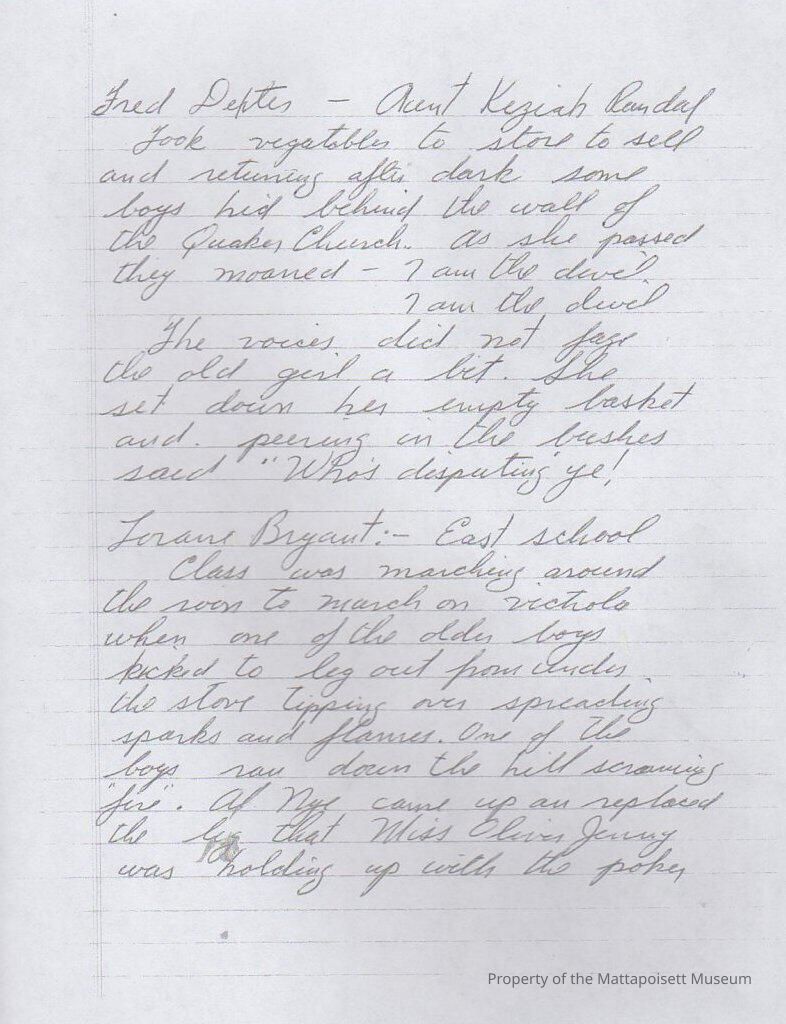 Fred Dexter — Aunt Keziah Randal
Took vegatables to store to sell
and returning after dark some
boys hid behind the wall of
the Quaker Church. As she passed
they moaned — I am the devil
I am the devil
The voices did not faze
the old girl a bit. She
set down her empty basket
and. peering in the bushes
said "Who's disputing ye!
Lorane Bryant:- East school
Class was marching around
the room to march on victrola
when one of the older boys
kicked to leg out from under
the stove tipping over spreading
sparks and flames. One of the
boys ran down the hill screaming
"fire". Al Nye came up an replaced
the leg that Miss Olive Jenny
was holding up with the poker
Property of the Mattapoisett Museum